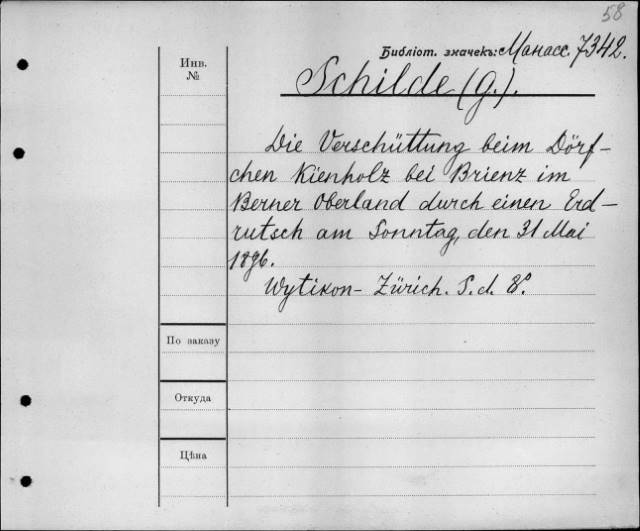 58
Библіот. значекъ: Манасс. 7342.
Инв.
№
Schilde (G.).
Die Verschüttung beim Dörf-
chen Kienholz bei Brienz im
Berner Oberland durch einen Erd-
rutsch am Sonntag, den 31 Mai
1896.
Wytikon-Zürich. S. d. 8°.
По заказу
Откуда
Цѣна